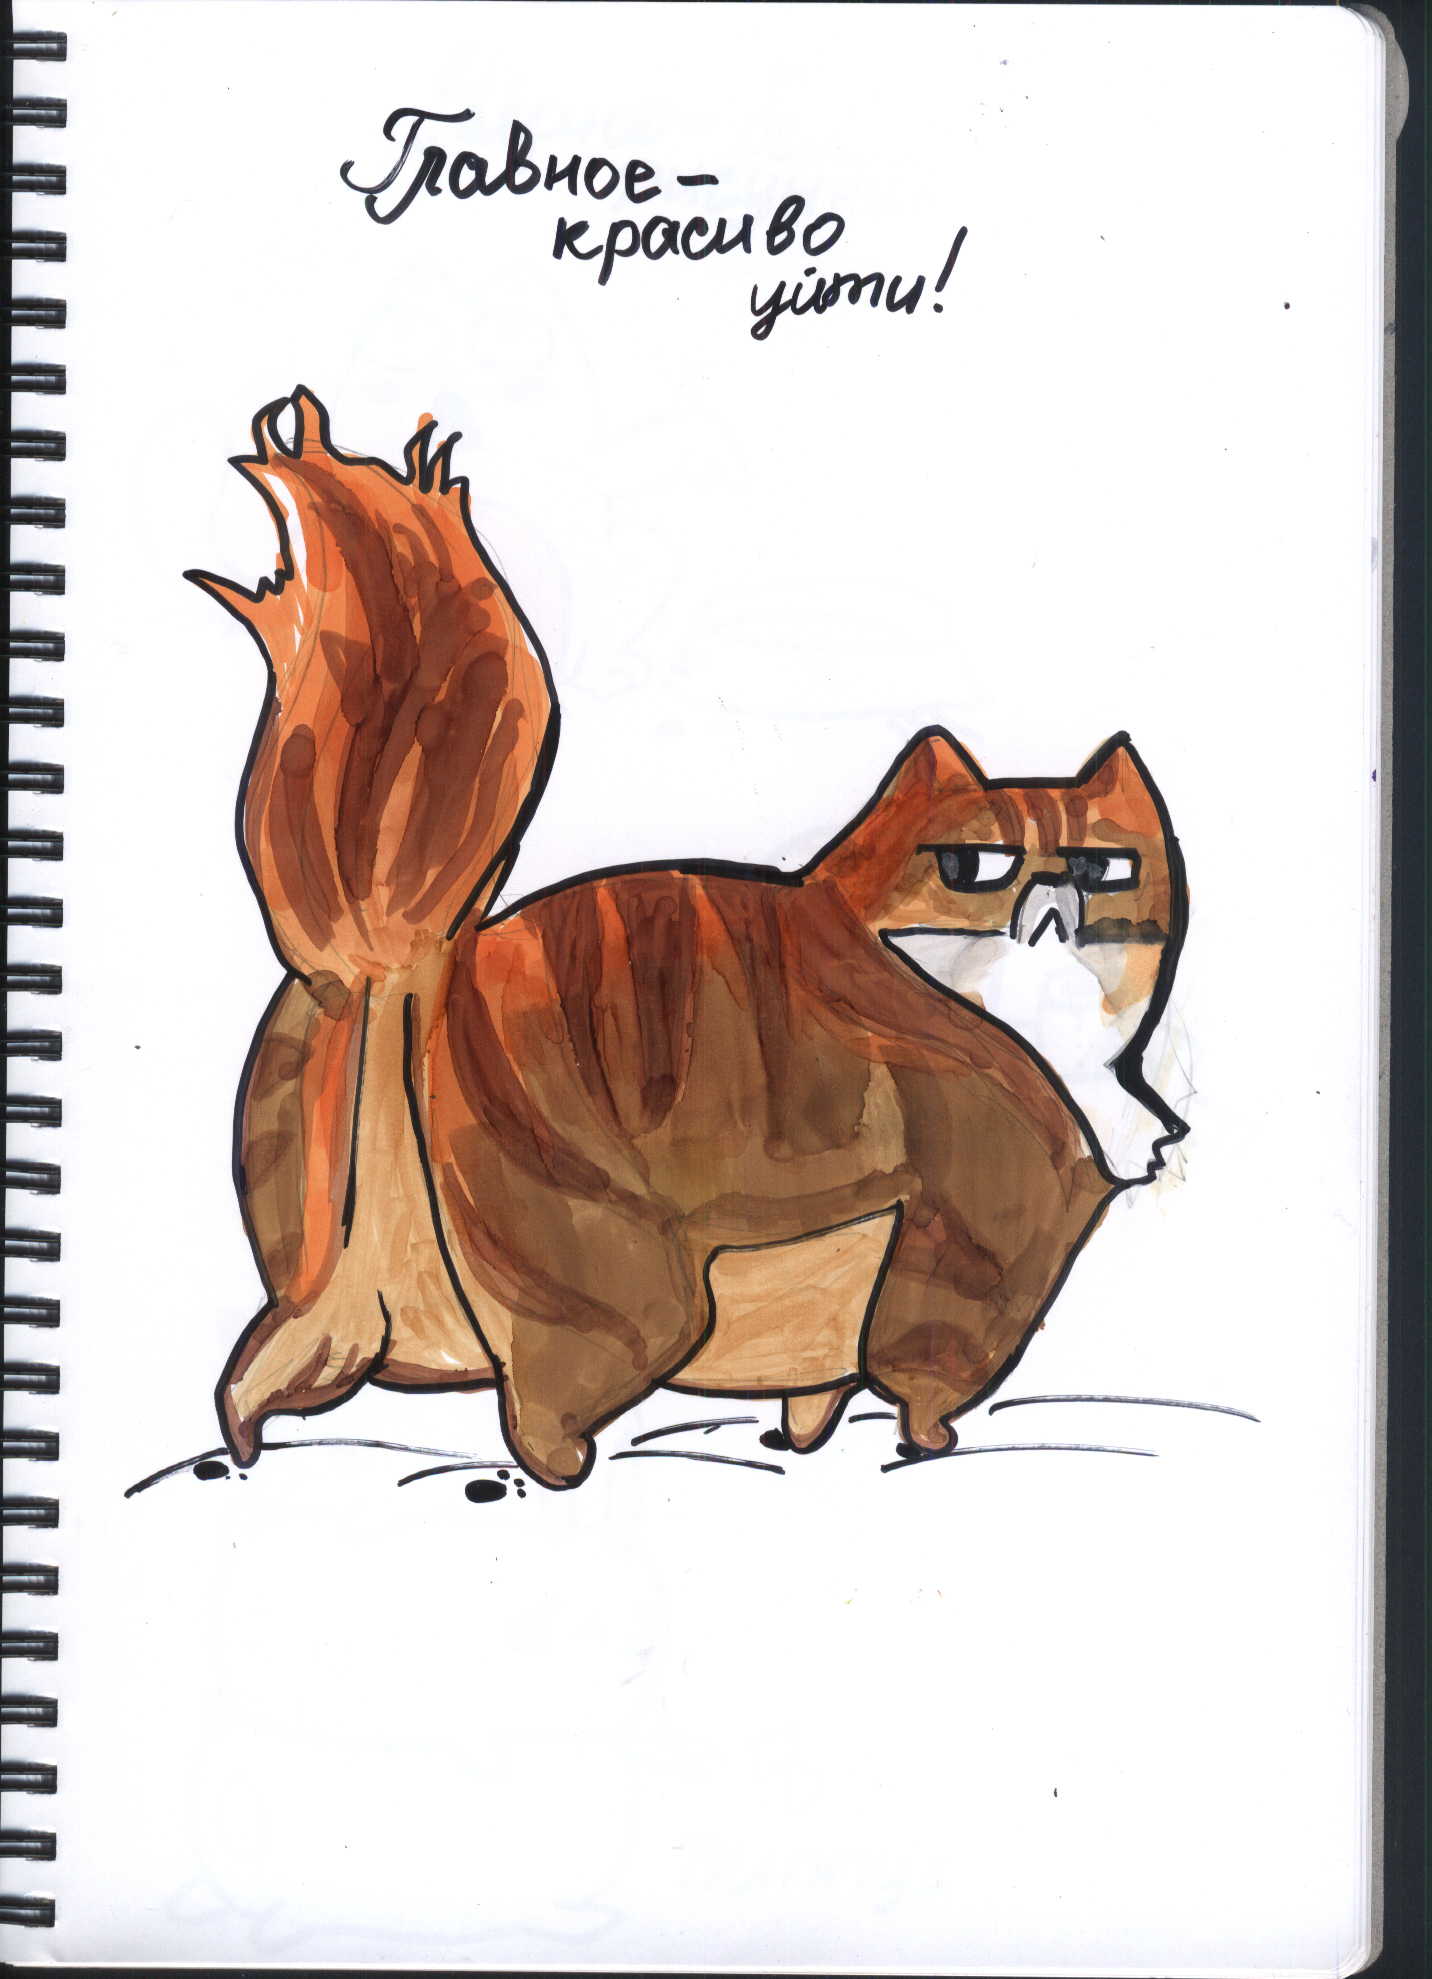 Главное -
красиво
уйти!